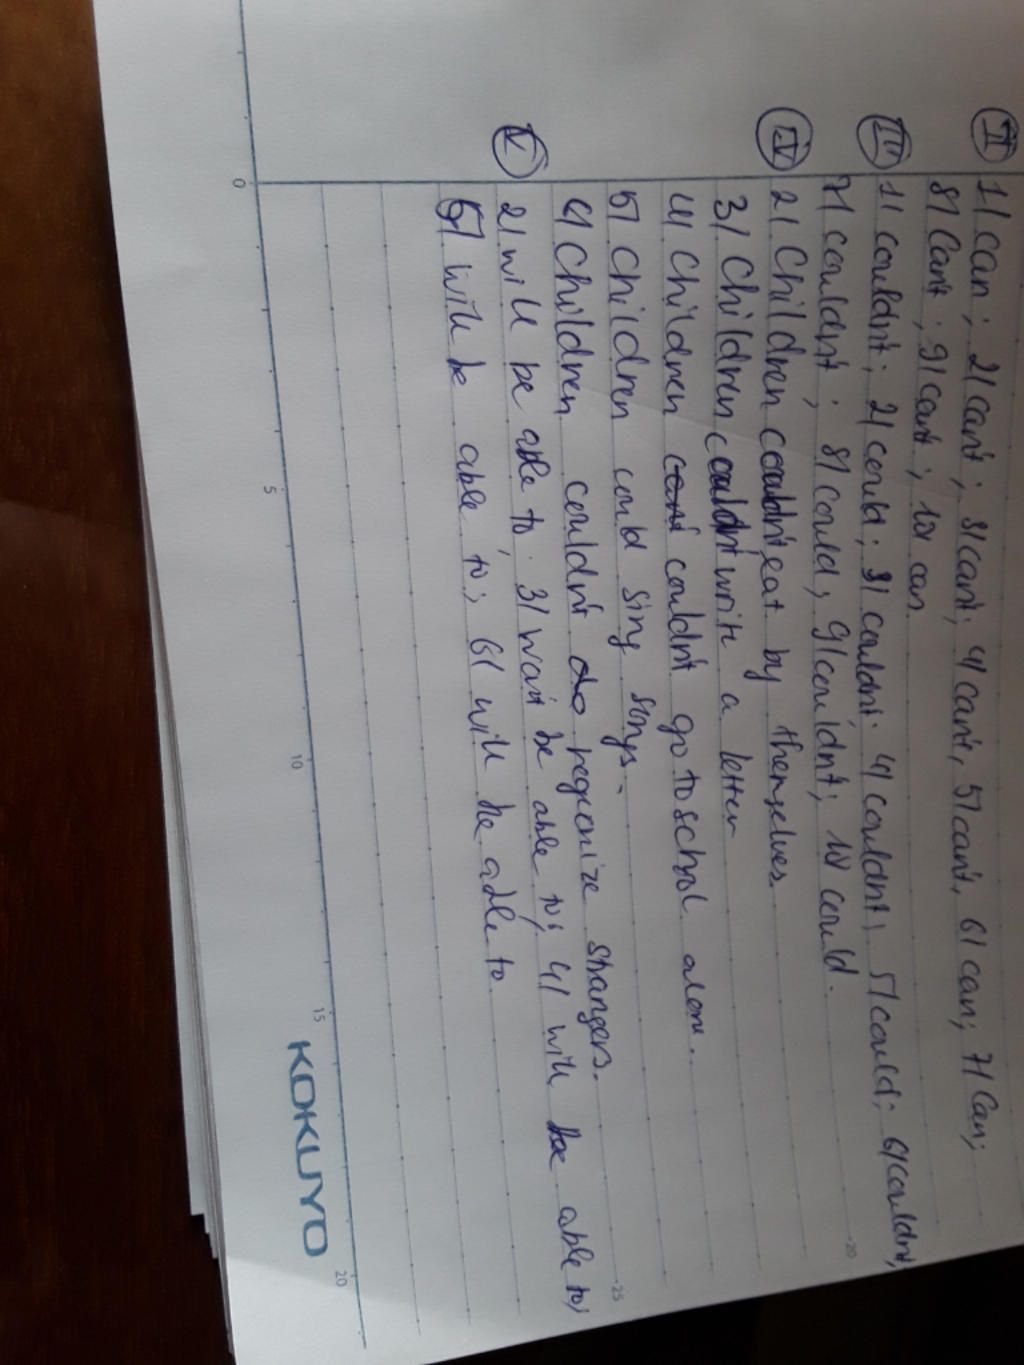 II 1/ can; 2/ can't; 3/ can't; 4/ can't, 5/ can't, 6/ can; 7/ Can;
8/ Can't; 9/ can't; 10/ can
III 1/ couldn't; 2/ could; 3/ couldn't. 4/ couldn't; 5/ could; 6/ couldn't;
7/ couldn't; 8/ could, 9/ couldn't; 10/ could.
IV 2/ Children couldn't eat by themselves.
3/ Children couldn't write a letter
4/ Children couldn't go to school alone.
5/ Children could sing songs.
6/ Children couldn't regconize strangers.
V 2/ will be able to; 3/ won't be able to; 4/ will be able to;
5/ will be able to; 6/ will be able to
0 5 10 15 20
20
25
KOKUYO